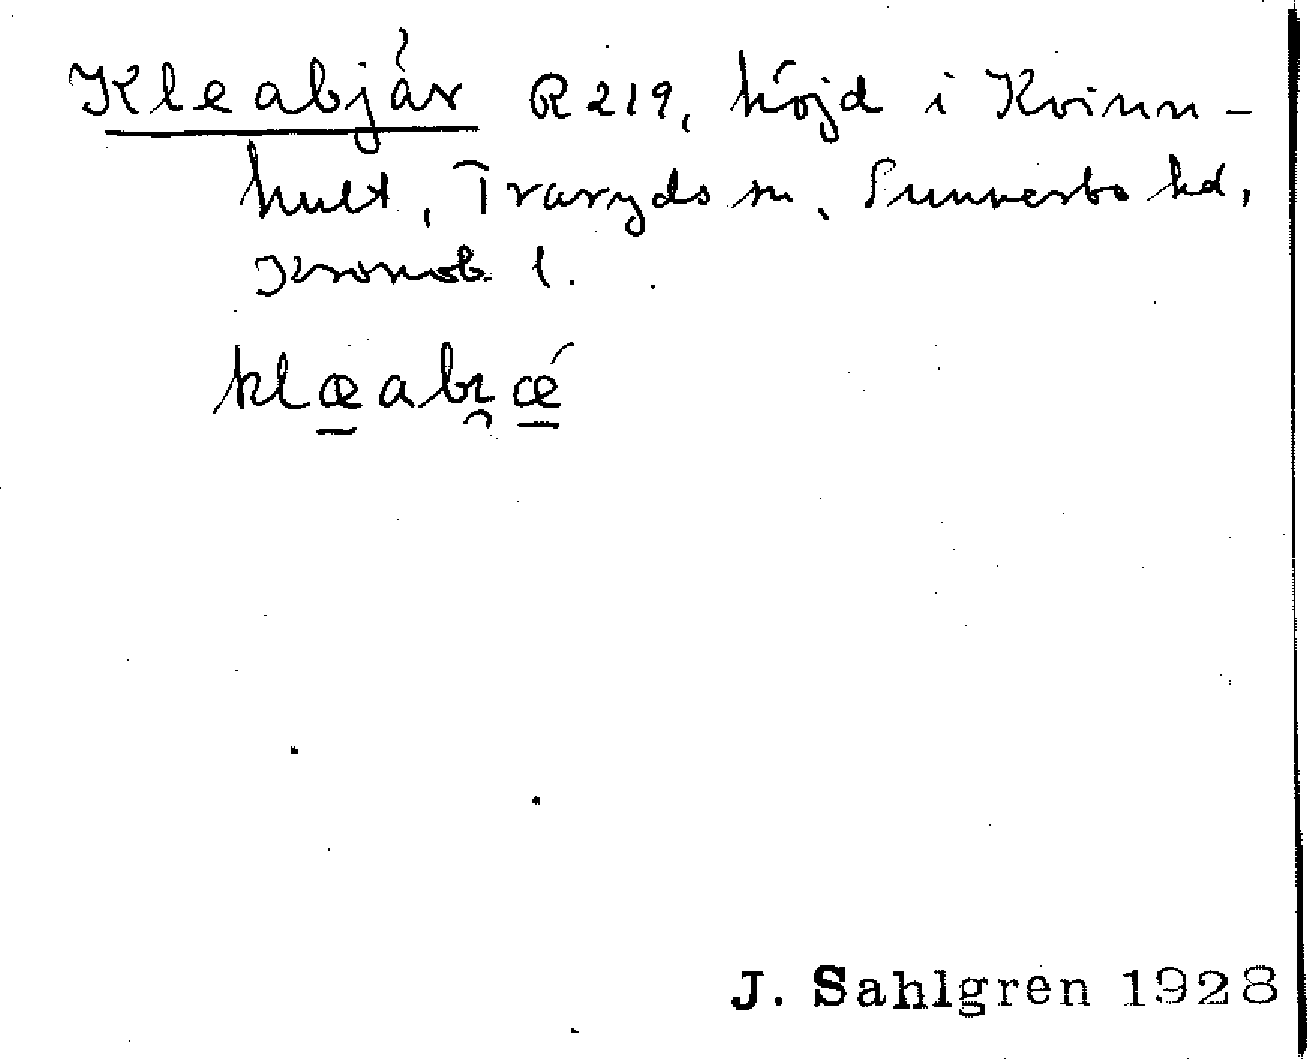 Kleabjär R219, höjd i Kvinn-
hult, Traryds sn, Sunnerbo hd,
Kronob. l.
klæabı̯ǽ
J. Sahlgren 1928